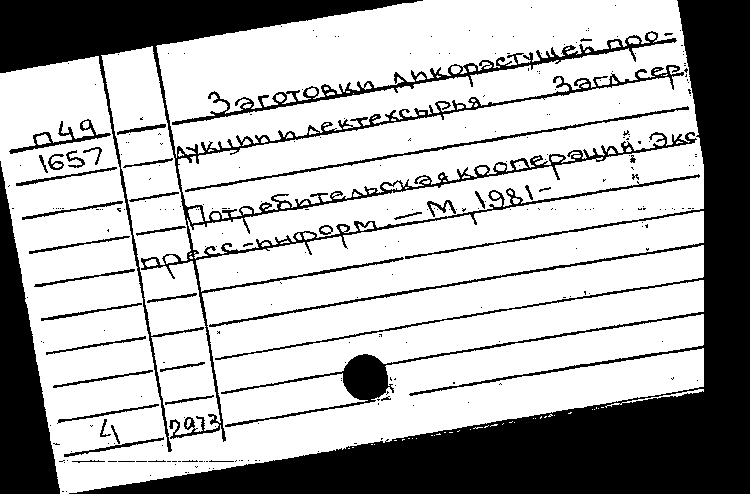 Заготовки дикорастущей про-
дукции и лектехсырья. Загл. сер.
П49
1657
Потребительская кооперация: Экс
пресс-информ. — М., 1981-
4 2973